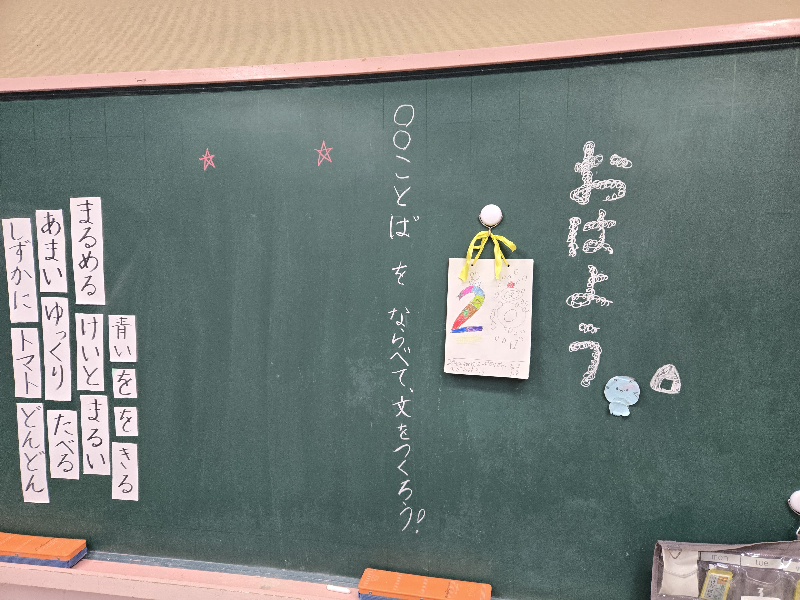 おはよう
2
〇〇ことば を ならべて、文をつくろう!
青い を を きる
まるめる けいと まるい
あまい ゆっくり たべる
しずかに トマト どんどん
mon
tue
3